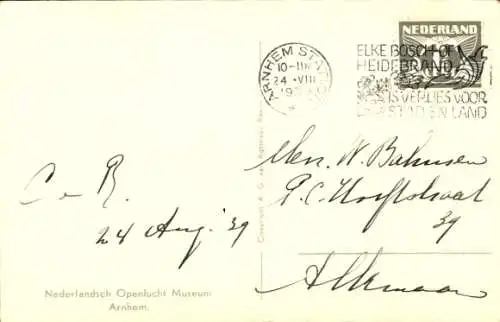 NEDERLAND
ARNHEM STATION
10-11
24 VIII
ELKE BOSCH- OF
HEIDEBRAND
IS VERLIES VOOR
STAD EN LAND
C. v. R.
24 Aug. '39
P. C. Hooftstraat
39
Alkmaar
Nederlandsch Openlucht Museum
Arnhem.